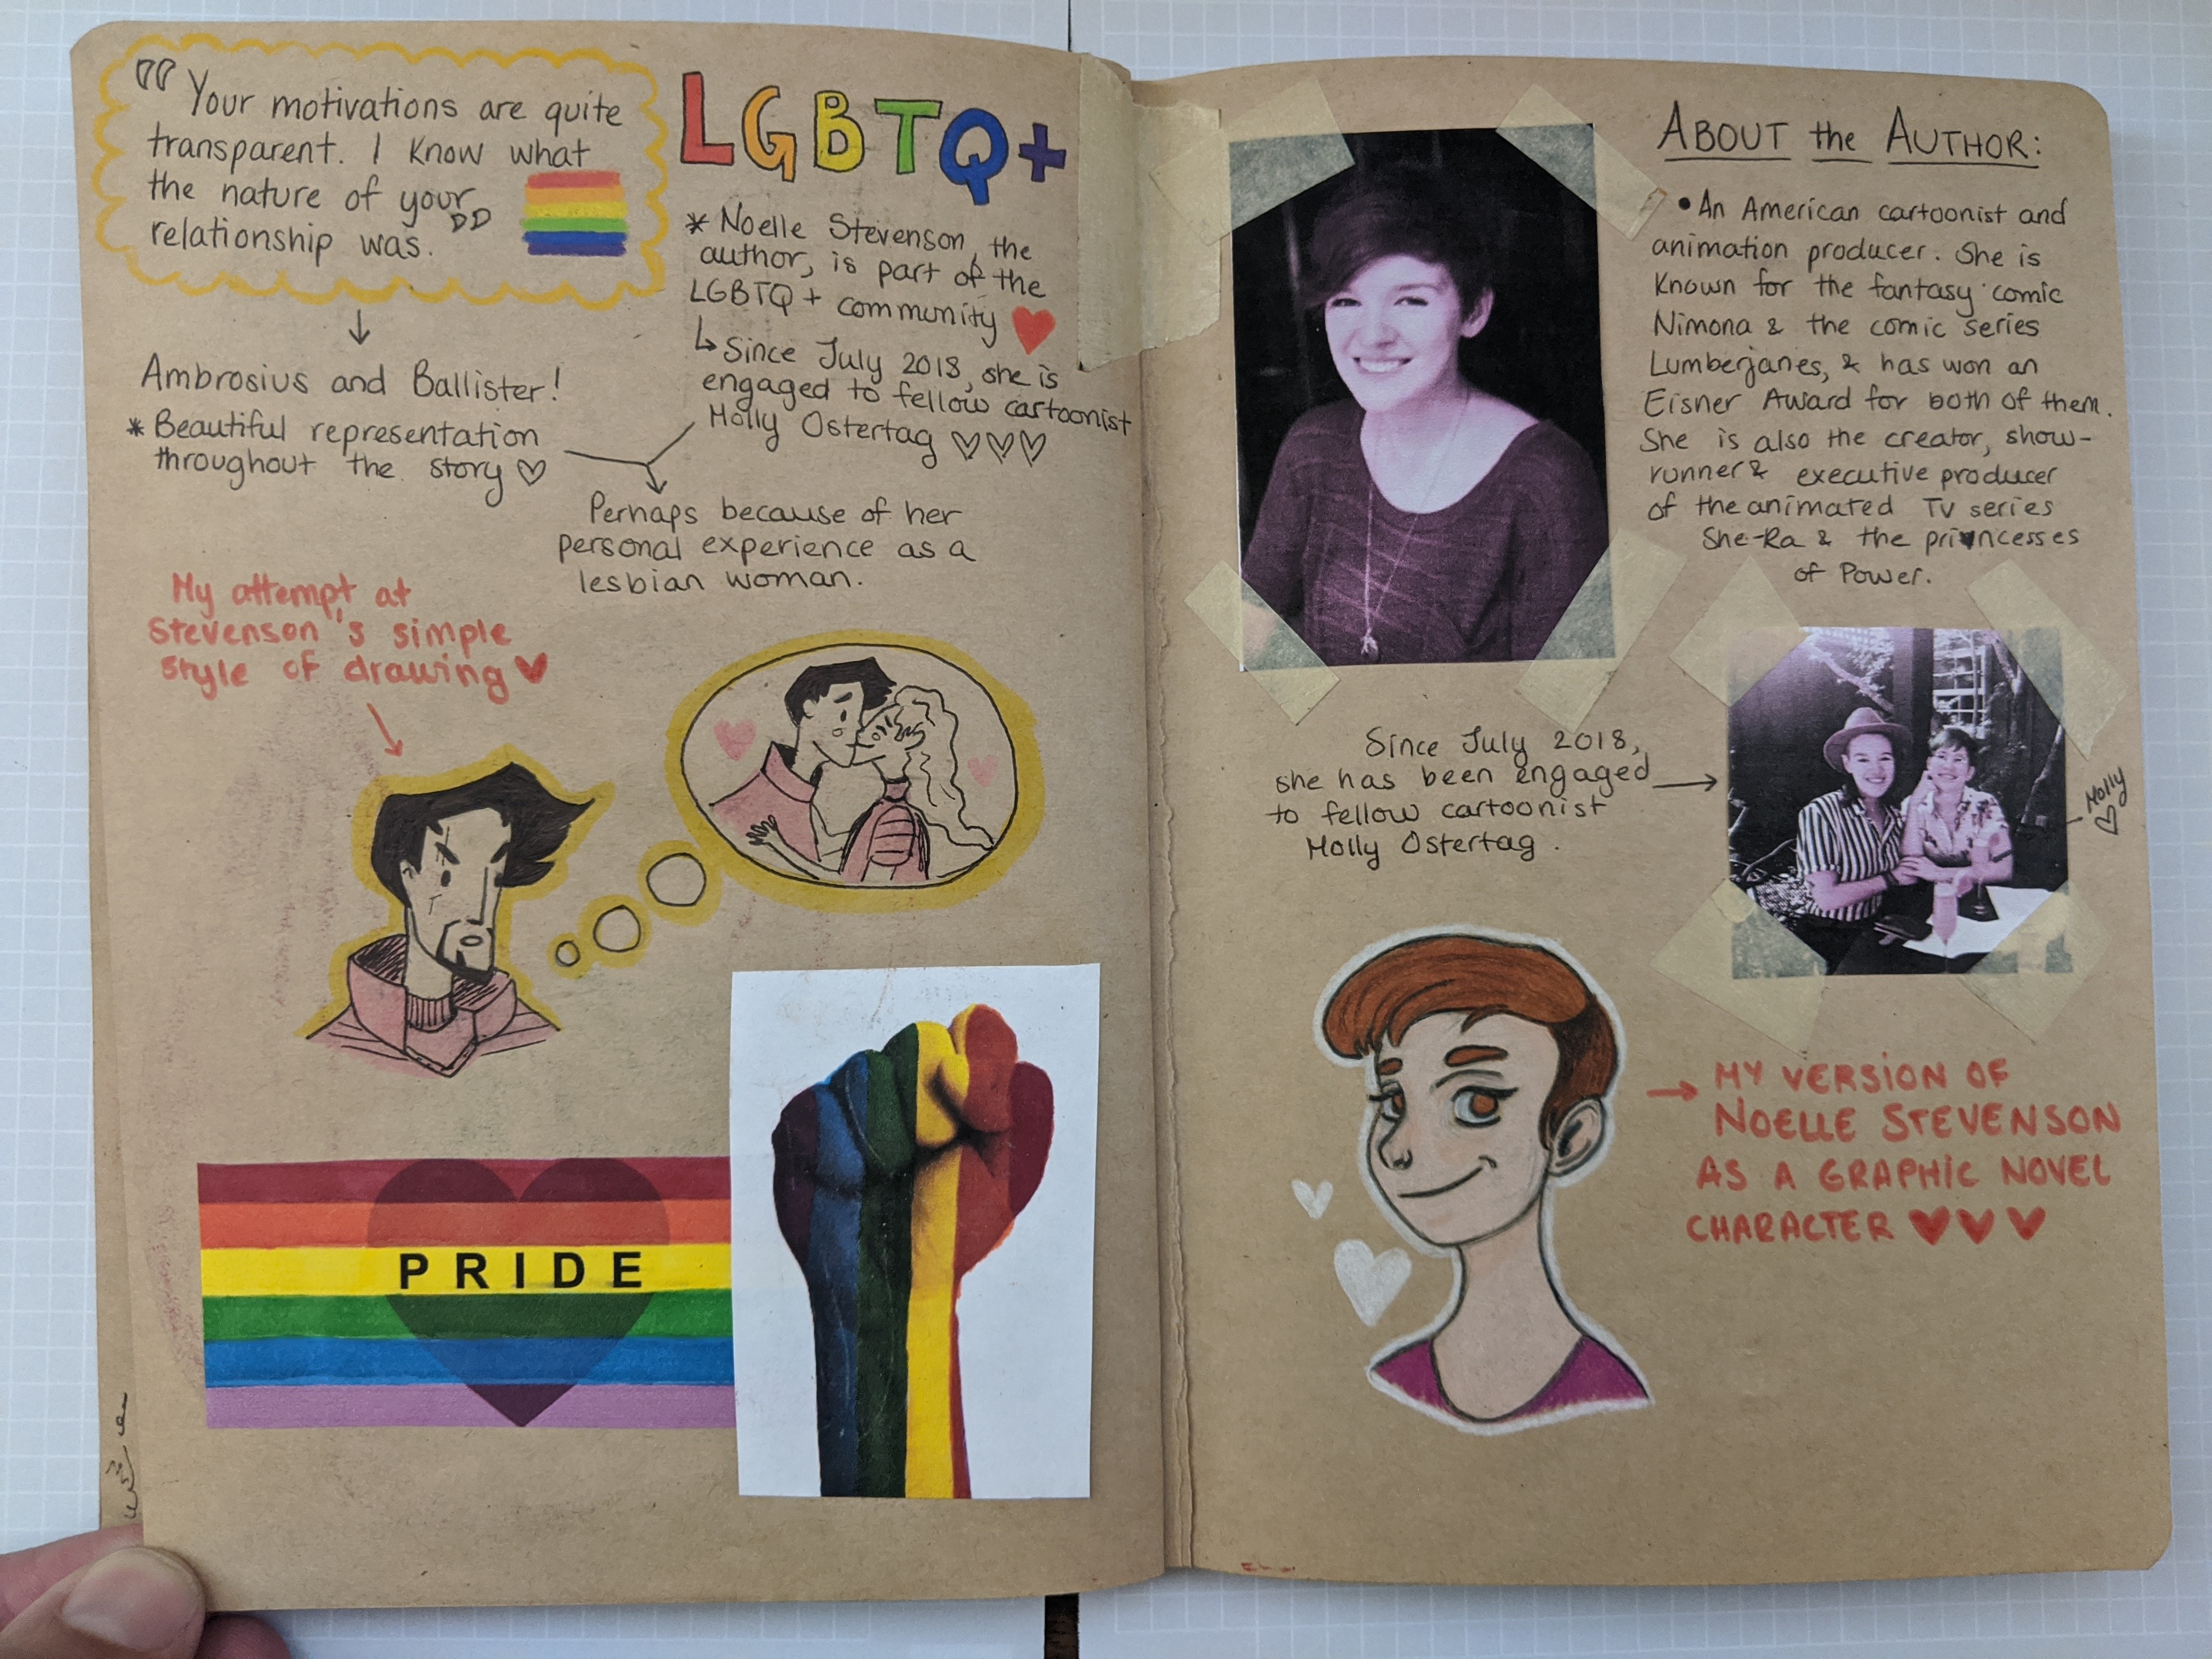 "Your motivations are quite
transparent. I know what
the nature of your
relationship was."
Ambrosius and Ballister!
* Beautiful representation
throughout the story ♡
LGBTQ+
* Noelle Stevenson, the
author, is part of the
LGBTQ+ community ♥
↳ Since July 2018, she is
engaged to fellow cartoonist
Molly Ostertag ♡♡♡
Perhaps because of her
personal experience as a
lesbian woman.
My attempt at
Stevenson's simple
style of drawing ♥
PRIDE
ABOUT the AUTHOR:
• An American cartoonist and
animation producer. She is
known for the fantasy comic
Nimona & the comic series
Lumberjanes, & has won an
Eisner Award for both of them.
She is also the creator, show-
runner & executive producer
of the animated TV series
She-Ra & the princesses
of Power.
Since July 2018,
she has been engaged
to fellow cartoonist
Molly Ostertag.
Molly
♡
→ MY VERSION OF
NOELLE STEVENSON
AS A GRAPHIC NOVEL
CHARACTER ♥♥♥